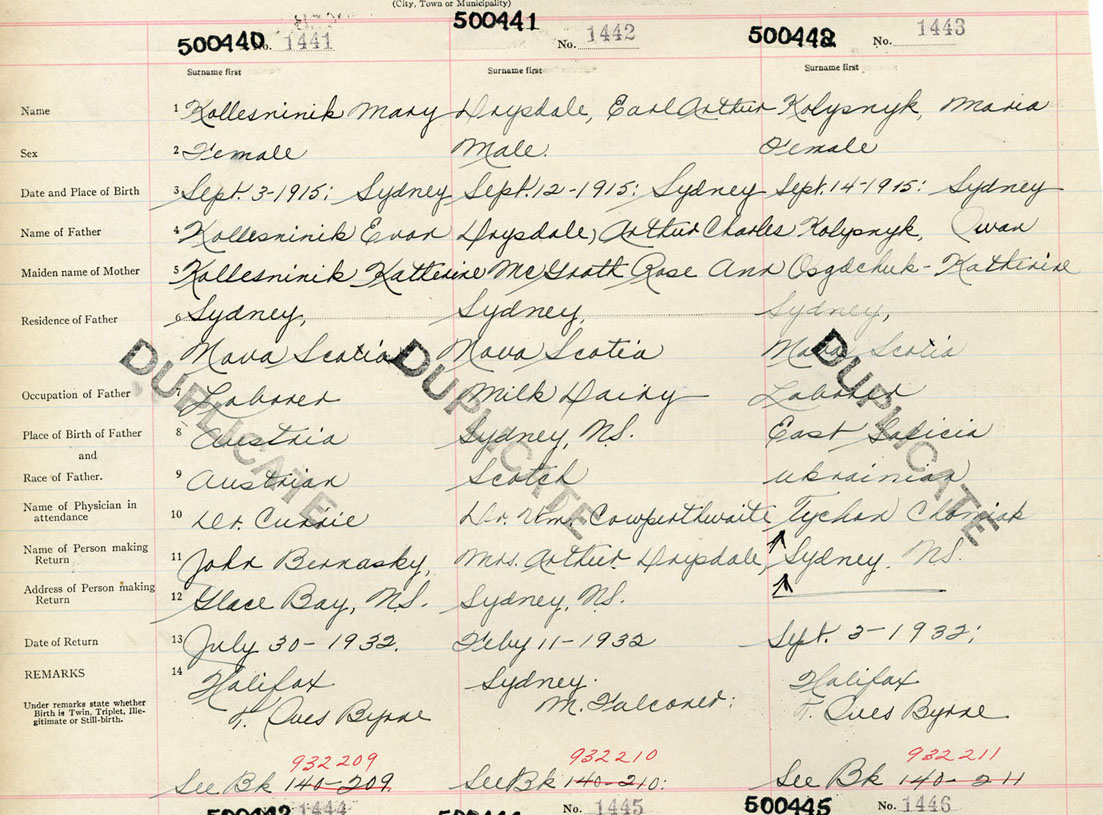 (City, Town or Municipality)
500440 No. 1441 500441 No. 1442 500442 No. 1443
Surname first Surname first Surname first
Name 1 Kollesninik Mary Drysdale, Earl Arthur Kolysnyk, Maria
Sex 2 Female Male. Female
Date and Place of Birth 3 Sept. 3-1915: Sydney Sept. 12-1915: Sydney Sept. 14-1915: Sydney
Name of Father 4 Kollesninik Evan Drysdale, Arthur Charles Kolysnyk, Owan
Maiden name of Mother 5 Kollesninik Katherine McGrath Rose Ann Osgdchuk - Katherine
Residence of Father 6 Sydney, Sydney, Sydney,
Nova Scotia Nova Scotia Nova Scotia
DUPLICATE DUPLICATE DUPLICATE
Occupation of Father 7 Laborer Milk Dairy Laborer
Place of Birth of Father 8 Austria Sydney, N.S. East Galicia
and
Race of Father. 9 Austrian Scotch Ukrainian
Name of Physician in attendance 10 Dr. Currie Dr. Wm. Cowperthwaite Tychon Chomiak
Name of Person making Return 11 John Bernasky, Mrs. Arthur Drysdale, Sydney, N.S.
Address of Person making Return 12 Glace Bay, N.S. Sydney, N.S.
Date of Return 13 July 30-1932. Feby 11-1932 Sept. 3-1932;
REMARKS 14 Halifax Sydney. Halifax
Under remarks state whether Birth is Twin, Triplet, Ille-
gitimate or Still-birth.
F. Ives Byrne M. Falconer: F. Ives Byrne
932209 932210 932211
See Bk 140-209. See Bk 140-210: See Bk 140-211
1444 No. 1445 500445 No. 1446